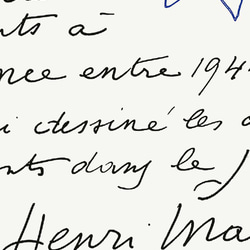 nts à
nce entre 194
i dessiné les
nts dans le J
Henri Ma